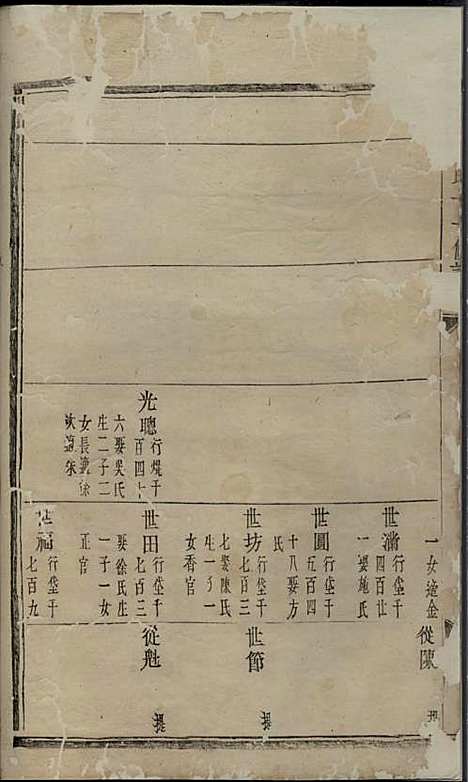 一女適金
從陳
世潘
行垈千
四百廿
一娶施氏
世圓
行垈千
五百四
十八娶方
氏
世坊
行垈千
七百三
七娶陳氏
生一子一
女香官
世節
光聰
行焜千
百四十
六娶吳氏
生二子二
女長適徐
次適朱
世田
行垈千
七百三
娶徐氏生
一子一女
正官
從魁
世福
行垈千
七百九